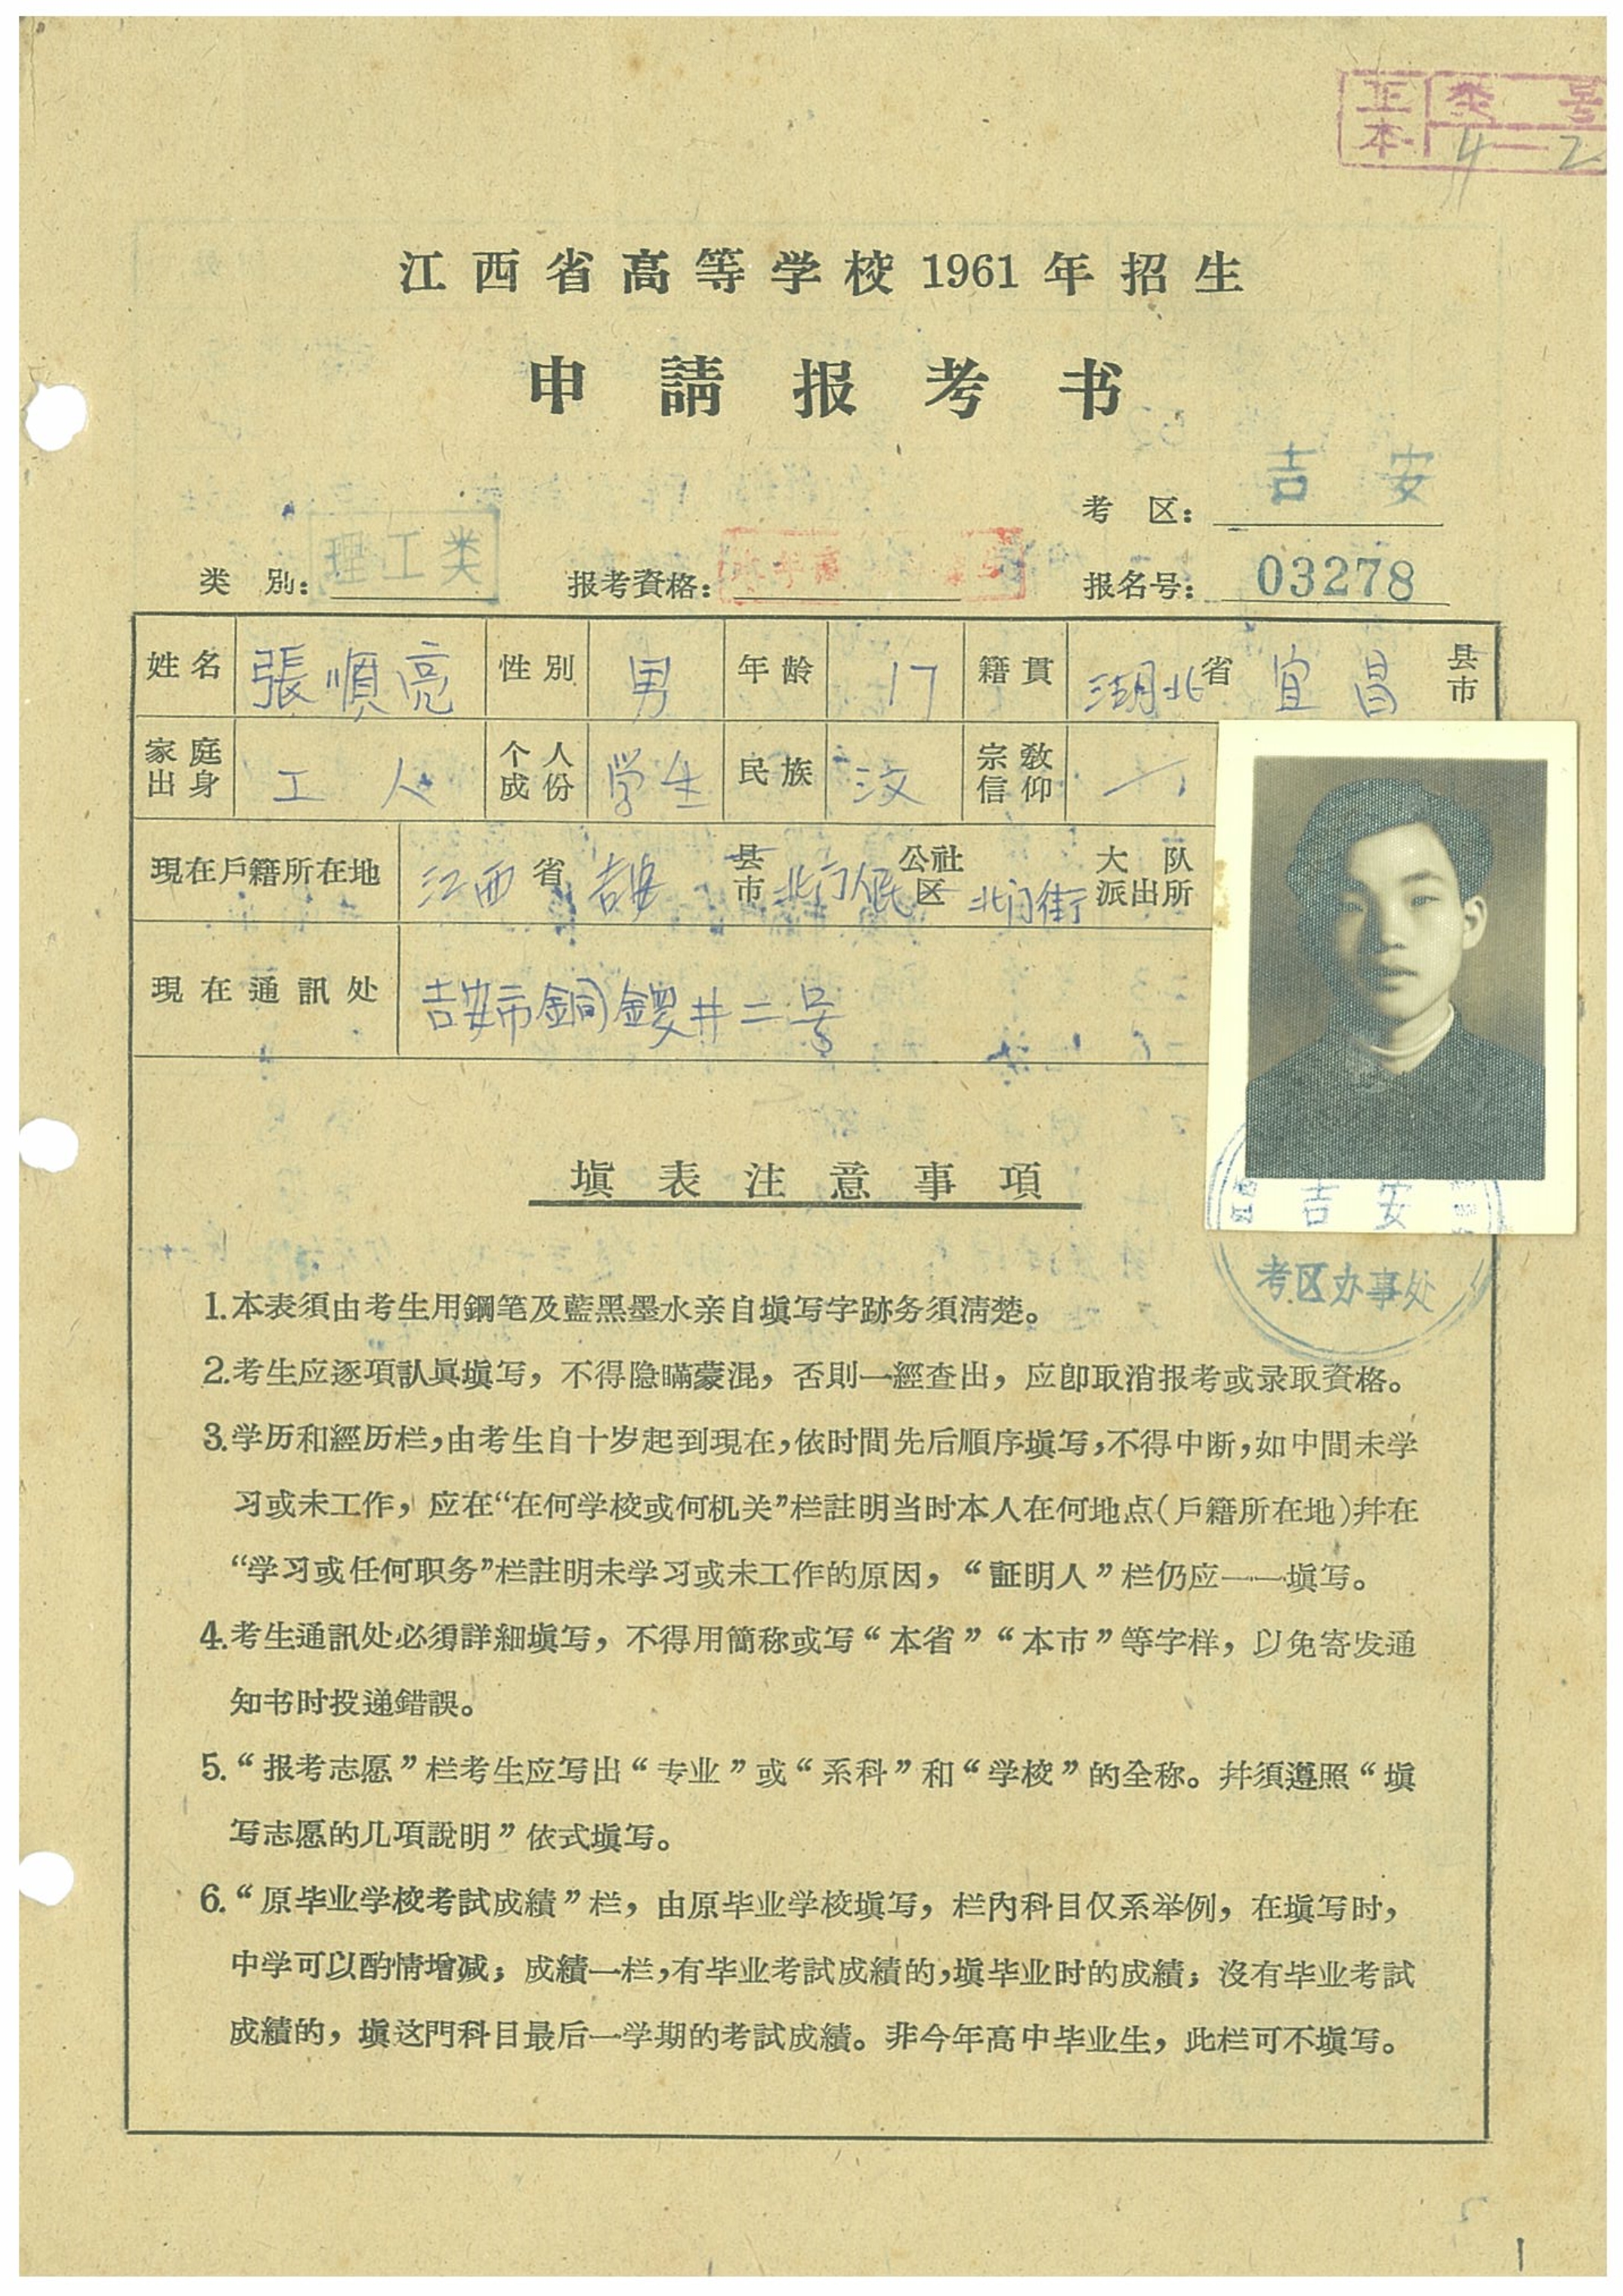 正本 类 号
4—2
江西省高等学校1961年招生
申請报考书
考区：吉安
类別：理工类 报考資格： 报名号：03278
姓名 張順亮 性別 男 年龄 17 籍貫 湖北省 宜昌 县市
家庭出身 工人 个人成份 学生 民族 汉 宗敎信仰 一
現在戶籍所在地 江西省 吉安 县市 北门人民 公社区 北门街 大队派出所
現在通訊处 吉安市銅鑼井二号
吉安
考区办事处
塡表注意事項
1.本表須由考生用鋼笔及藍黑墨水亲自塡写字跡务須淸楚。
2.考生应逐項認眞塡写，不得隐瞞蒙混，否則一經查出，应卽取消报考或录取資格。
3.学历和經历栏，由考生自十岁起到現在，依时間先后順序塡写，不得中断，如中間未学
习或未工作，应在“在何学校或何机关”栏註明当时本人在何地点（戶籍所在地）幷在
“学习或任何职务”栏註明未学习或未工作的原因，“証明人”栏仍应一一塡写。
4.考生通訊处必須詳細塡写，不得用簡称或写“本省”“本市”等字样，以免寄发通
知书时投递錯誤。
5.“报考志愿”栏考生应写出“专业”或“系科”和“学校”的全称。幷須遵照“塡
写志愿的几項說明”依式塡写。
6.“原毕业学校考試成績”栏，由原毕业学校塡写，栏內科目仅系举例，在塡写时，
中学可以酌情增减；成績一栏，有毕业考試成績的，塡毕业时的成績；沒有毕业考試
成績的，塡这門科目最后一学期的考試成績。非今年高中毕业生，此栏可不塡写。
1